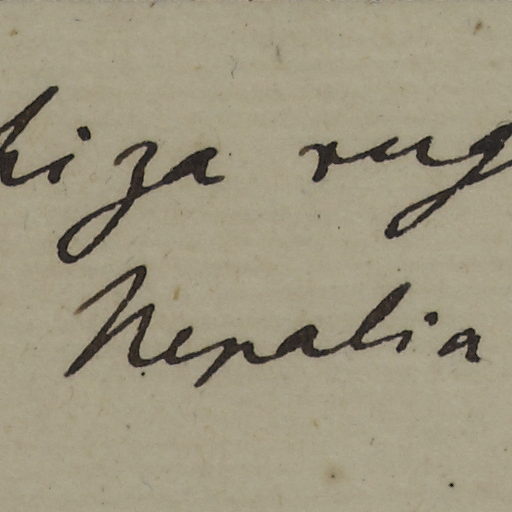 hiza rug
Nepalia